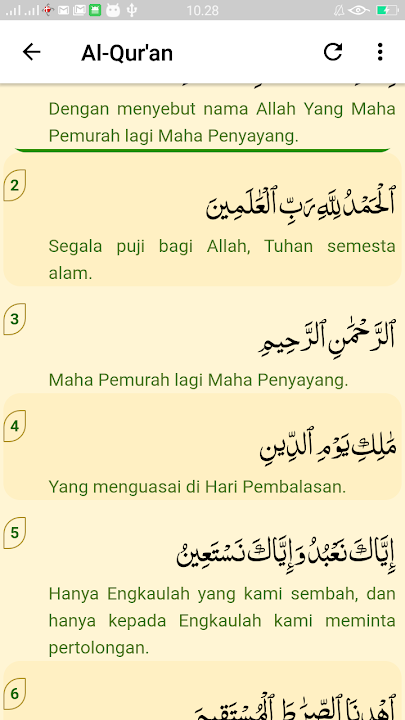 10.28
Al-Qur'an
Dengan menyebut nama Allah Yang Maha
Pemurah lagi Maha Penyayang.
2
ٱلْحَمْدُ لِلَّهِ رَبِّ ٱلْعَٰلَمِينَ
Segala puji bagi Allah, Tuhan semesta
alam.
3
ٱلرَّحْمَٰنِ ٱلرَّحِيمِ
Maha Pemurah lagi Maha Penyayang.
4
مَٰلِكِ يَوْمِ ٱلدِّينِ
Yang menguasai di Hari Pembalasan.
5
إِيَّاكَ نَعْبُدُ وَإِيَّاكَ نَسْتَعِينُ
Hanya Engkaulah yang kami sembah, dan
hanya kepada Engkaulah kami meminta
pertolongan.
6
ٱهْدِنَا ٱلصِّرَٰطَ ٱلْمُسْتَقِيمَ